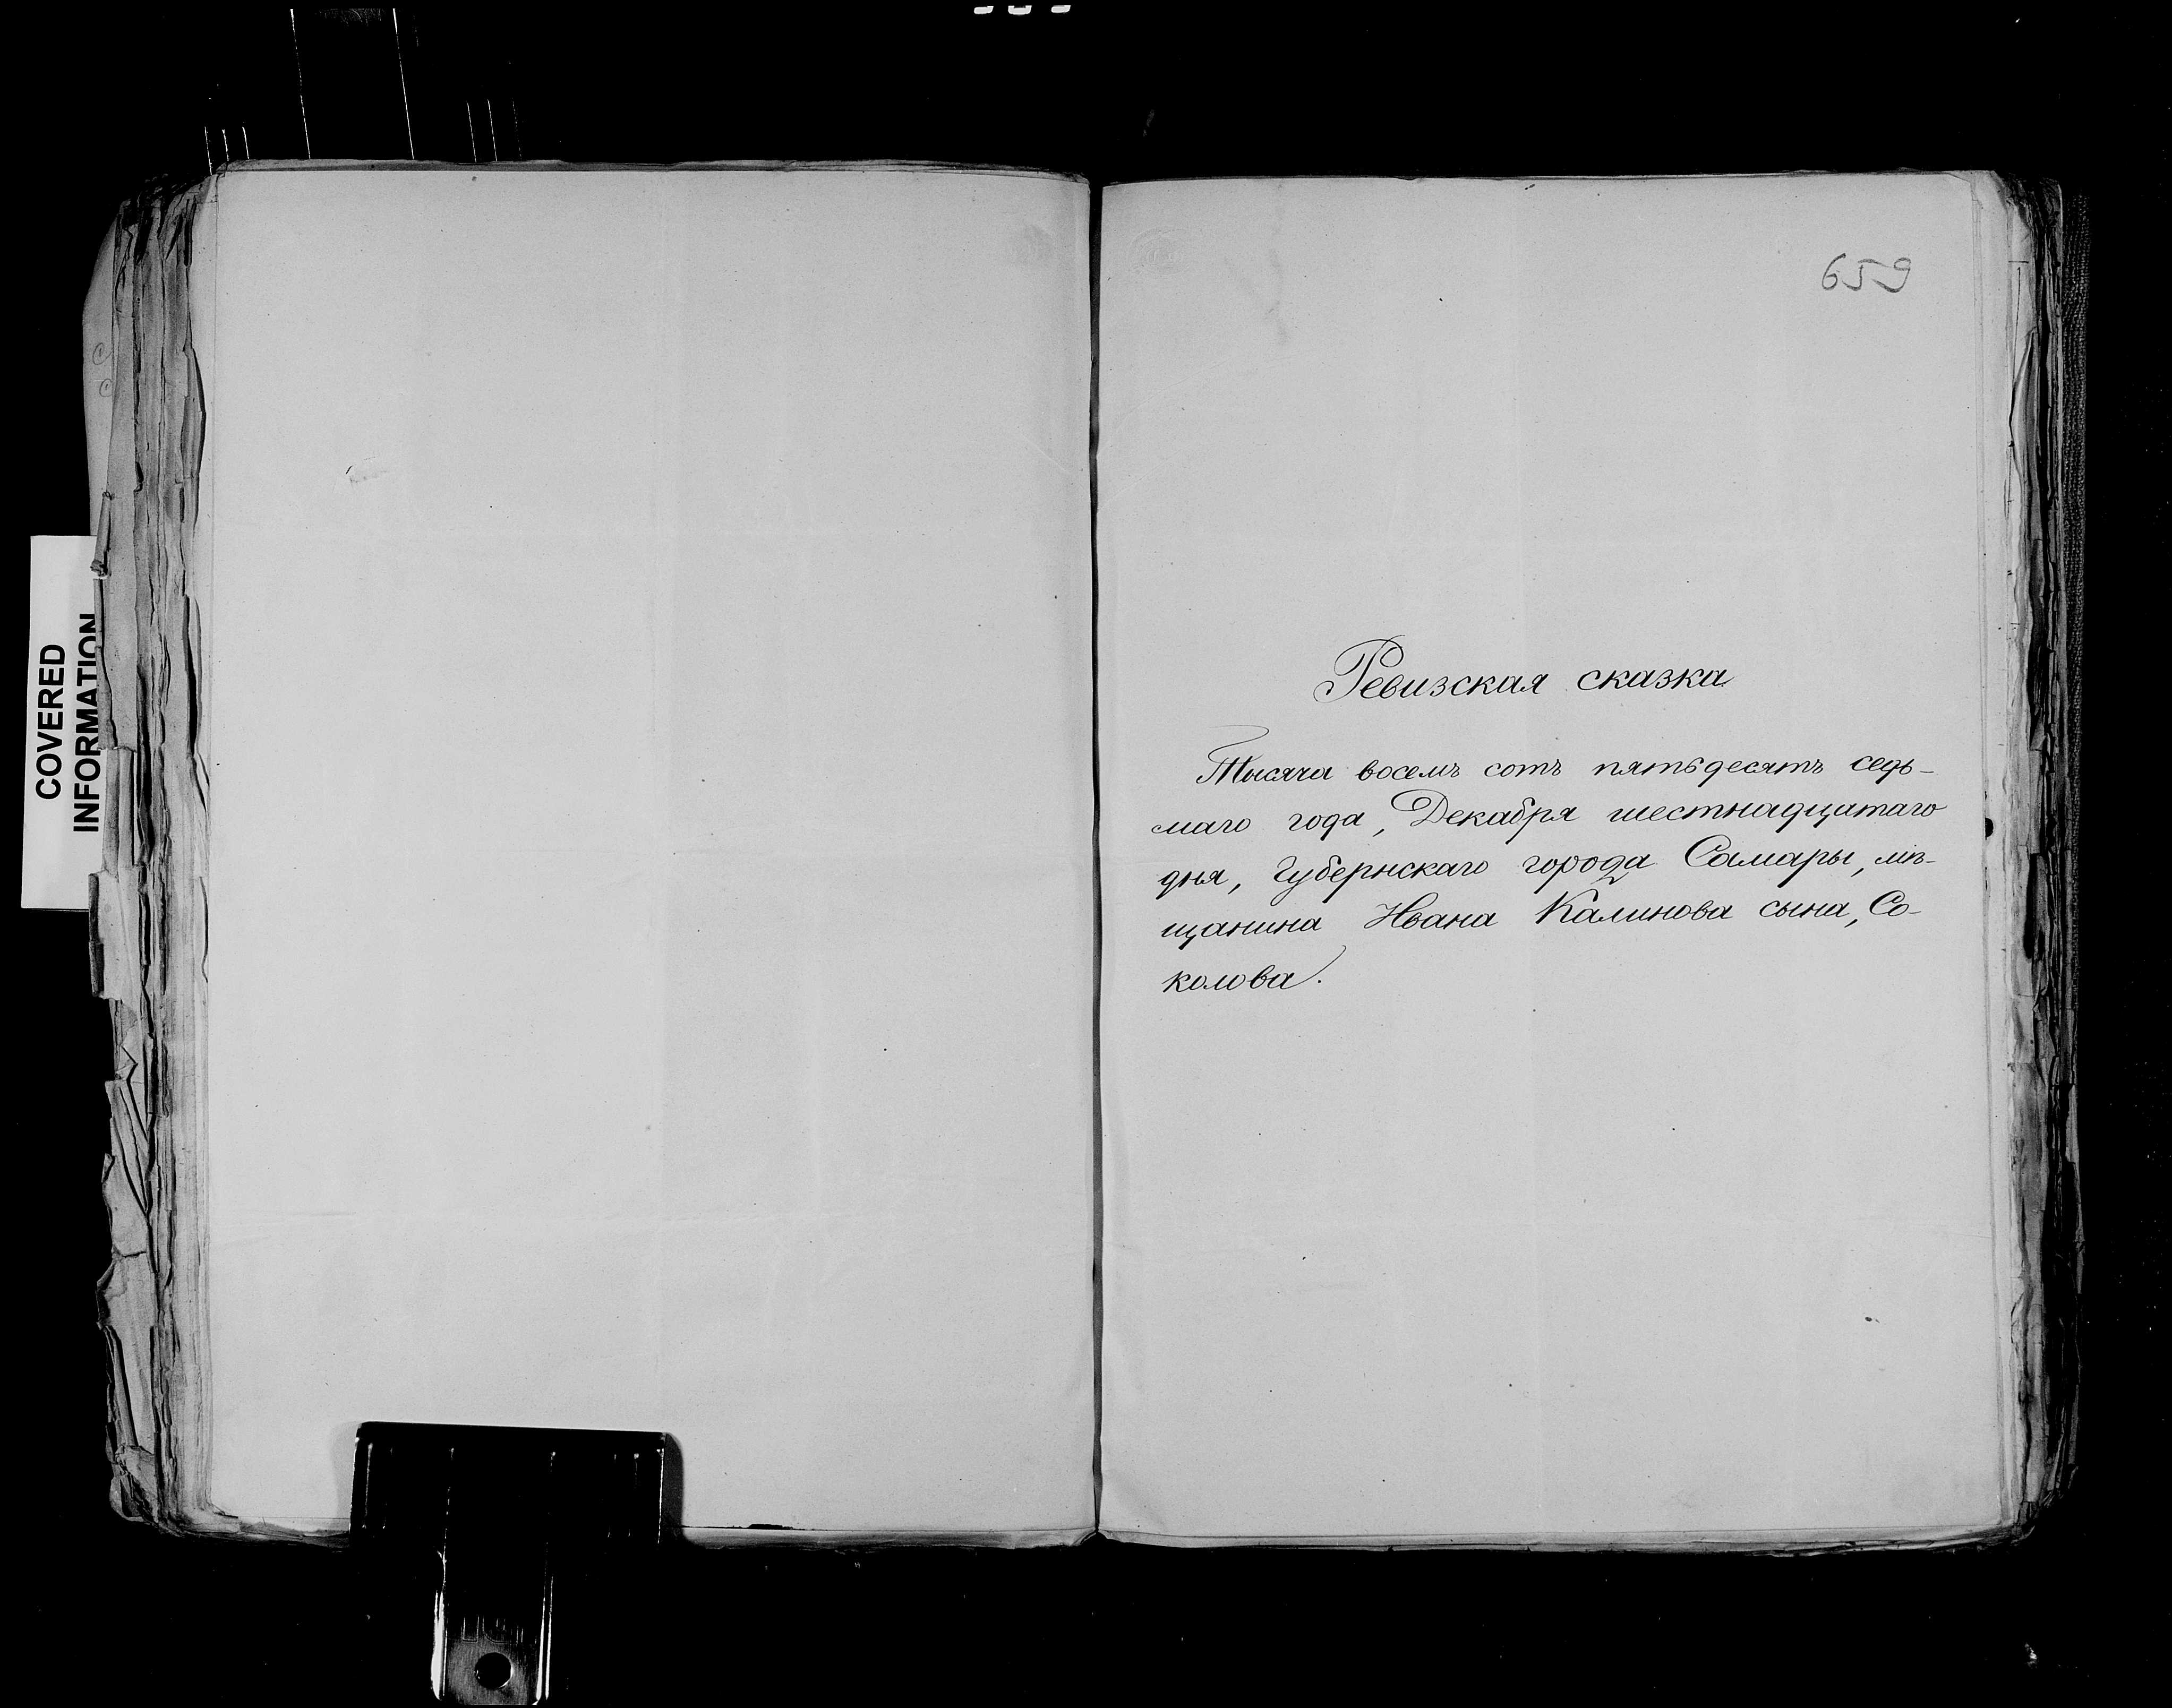 COVERED
INFORMATION
659
Ревизская сказка
Тысяча восемь сотъ пятьдесятъ седь-
маго года, Декабря шестнадцатаго
дня, Губернскаго города Самары, мѣ-
щанина Ивана Калинова сына, Со-
колова.